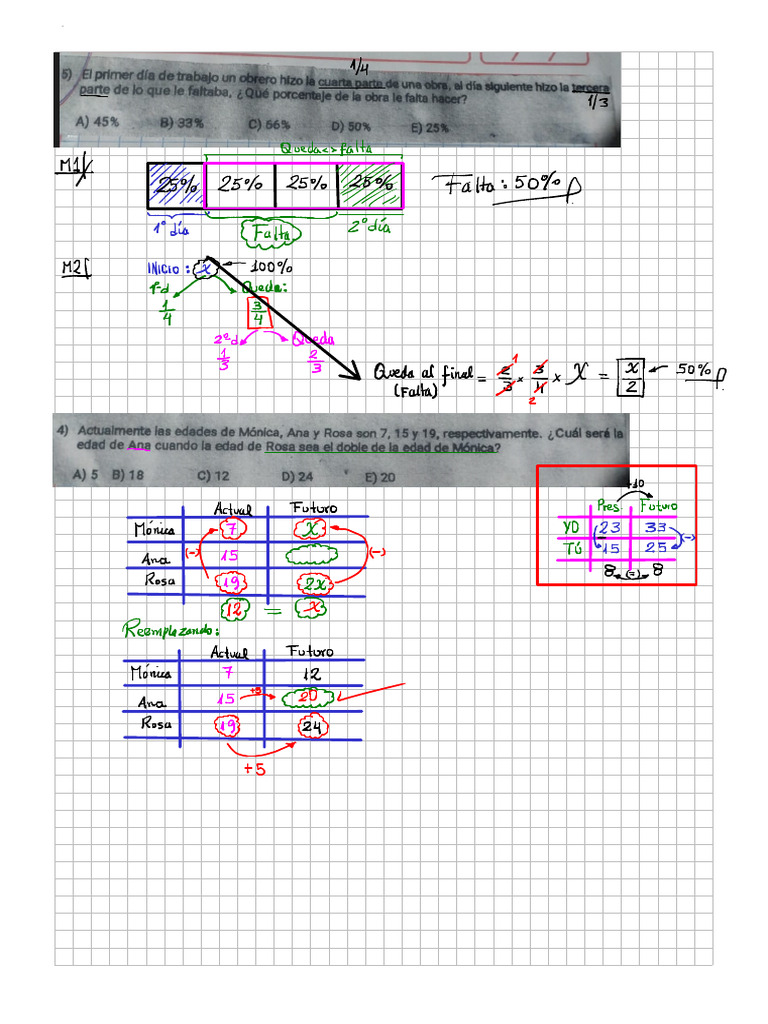 1/4
5) El primer día de trabajo un obrero hizo la cuarta parte de una obra, al día siguiente hizo la tercera
parte de lo que le faltaba, ¿Qué porcentaje de la obra le falta hacer?
1/3
A) 45% B) 33% C) 66% D) 50% E) 25%
Queda <> falta
M1
25% 25% 25% 25%
Falta: 50%
1° día Falta 2° día
M2
INICIO: x ← 100%
1°d Queda:
1/4 3/4
2°d Queda
1/3 2/3
Queda al final = 2/3 × 3/4 × X = x/2 ← 50%
(Falta)
1
2
4) Actualmente las edades de Mónica, Ana y Rosa son 7, 15 y 19, respectivamente. ¿Cuál será la
edad de Ana cuando la edad de Rosa sea el doble de la edad de Mónica?
A) 5 B) 18 C) 12 D) 24 E) 20
+10
Pres Futuro
YO 23 33 (-)
TÚ 15 25
8 (=) 8
Actual Futuro
Mónica 7 x
(-) Ana 15 (-)
Rosa 19 2x
12 = x
Reemplazando:
Actual Futuro
Mónica 7 12
Ana 15 +5 20
Rosa 19 24
+5